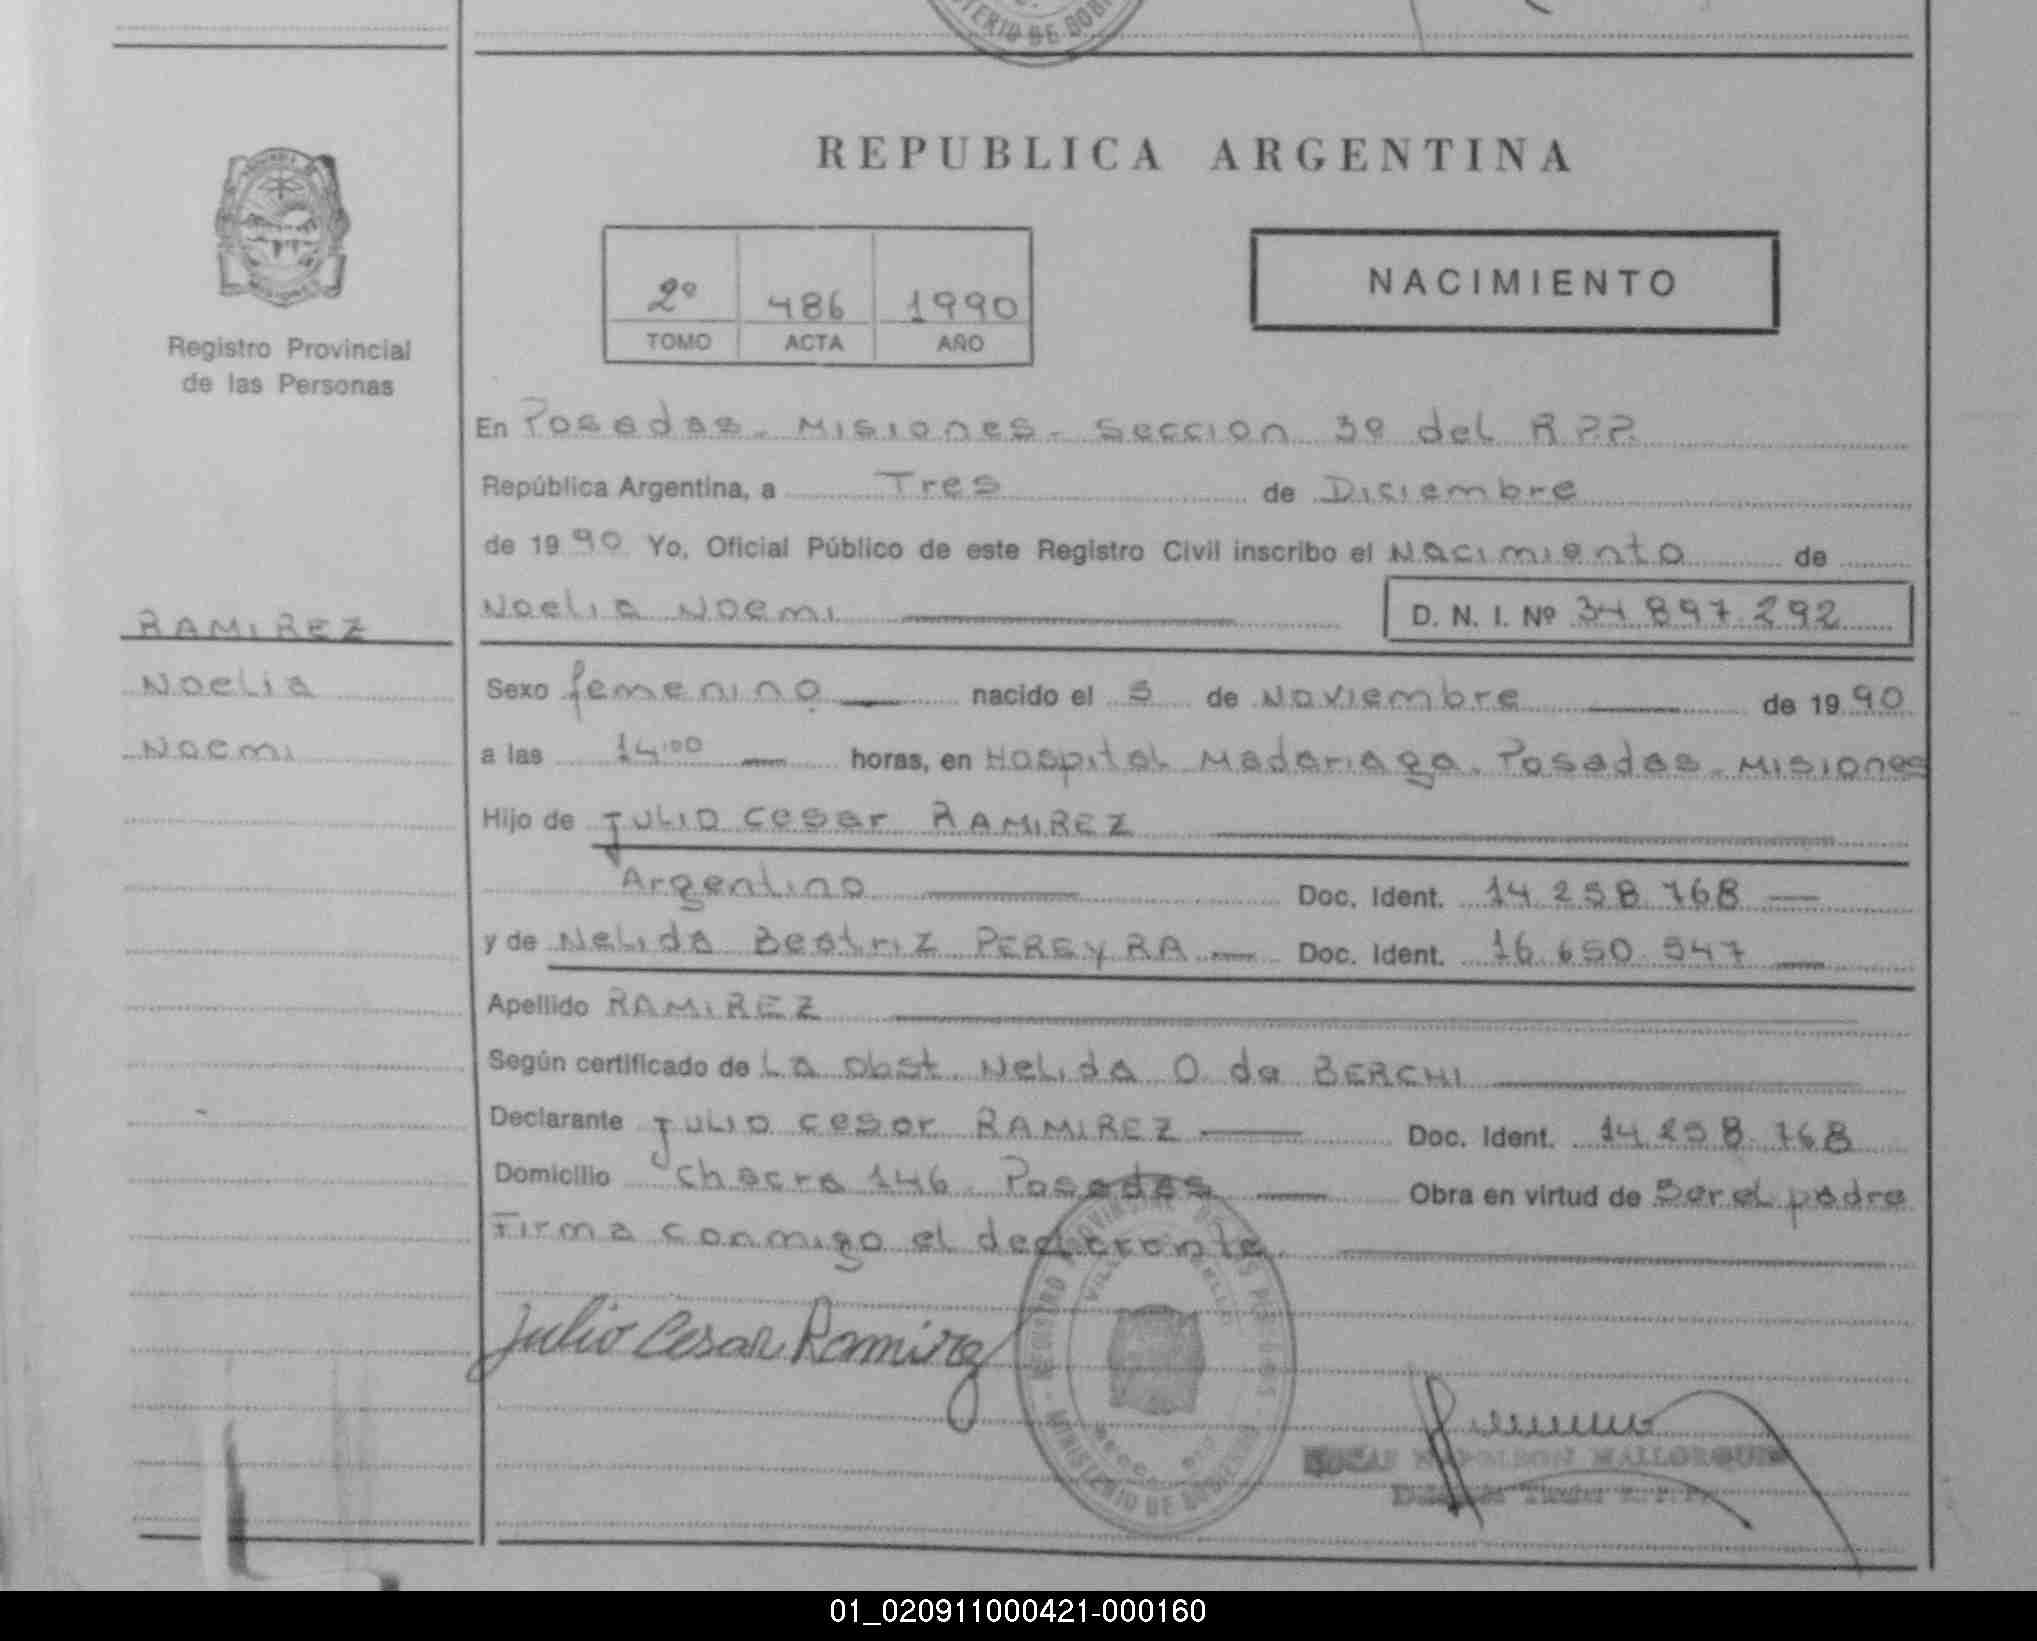 MINISTERIO DE GOBI
REPUBLICA ARGENTINA
NACIMIENTO
2º 486 1990
TOMO ACTA AÑO
Registro Provincial
de las Personas
En Posadas - Misiones - Seccion 3º del R.P.P.
República Argentina, a Tres de Diciembre
de 1990 Yo, Oficial Público de este Registro Civil inscribo el Nacimiento de
Noelia Noemi D. N. I. Nº 34.897.292
RAMIREZ
Noelia
Noemi
Sexo femenino nacido el 5 de Noviembre de 1990
a las 14:00 horas, en Hospital Madariaga. Posadas - Misiones
Hijo de Julio Cesar RAMIREZ
Argentino Doc. Ident. 14.258.768
y de Nelida Beatriz PEREYRA Doc. Ident. 16.650.547
Apellido RAMIREZ
Según certificado de La Obst. Nelida O. de BERCHI
Declarante Julio Cesar RAMIREZ Doc. Ident. 14.258.768
Domicilio Chacra 146 Posadas Obra en virtud de Ser el padre
Firma conmigo el declarante.
Julio Cesar Ramirez
REGISTRO PROVINCIAL DE LAS PERSONAS
MINISTERIO DE GOBIERNO
NAPOLEON MALLORQUIN
01_020911000421-000160